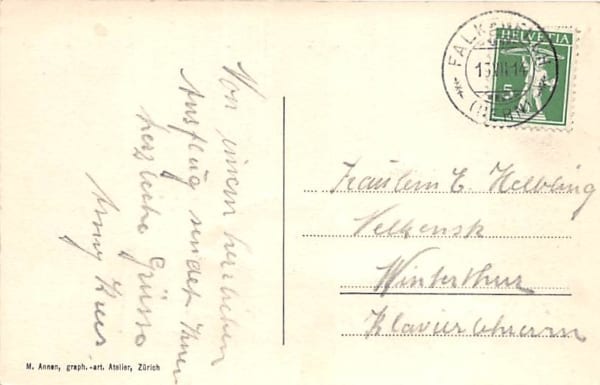 Von einem herrlichen
Ausflug sendet Ihnen
herzliche Grüsse
Anny
HELVETIA
5
FALKE
(BERN)
Fräulein E. Helbling
Winterthur
Klavierlehrerin
M. Annen, graph.-art. Atelier, Zürich